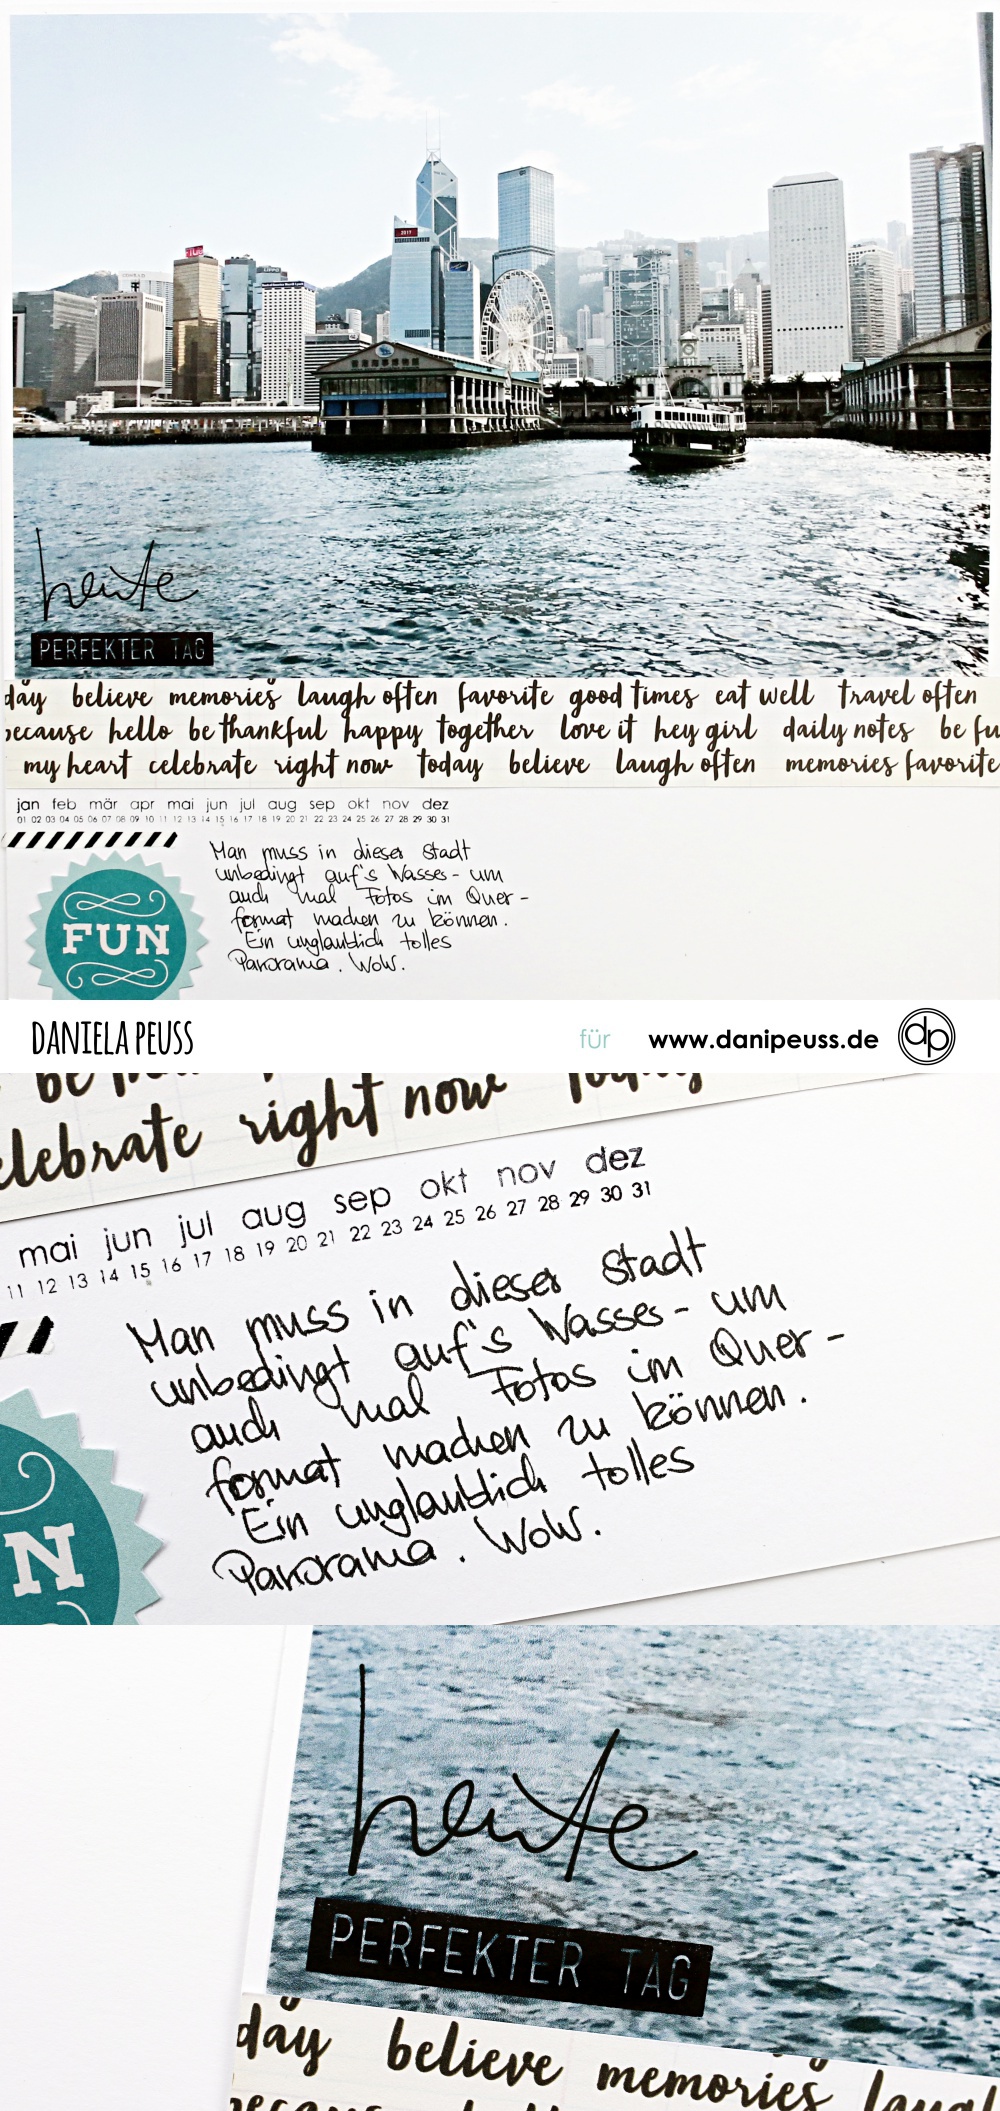 2017
heute
PERFEKTER TAG
day believe memories laugh often favorite good times eat well travel often
because hello be thankful happy together love it hey girl daily notes be fu
my heart celebrate right now today believe laugh often memories favorite
jan feb mär apr mai jun jul aug sep okt nov dez
01 02 03 04 05 06 07 08 09 10 11 12 13 14 15 16 17 18 19 20 21 22 23 24 25 26 27 28 29 30 31
Man muss in dieser Stadt
unbedingt auf's Wasser - um
auch mal Fotos im Quer -
format machen zu können.
Ein unglaublich tolles
Panorama. Wow.
FUN
DANIELA PEUSS
für www.danipeuss.de dp
elebrate right now today
mai jun jul aug sep okt nov dez
11 12 13 14 15 16 17 18 19 20 21 22 23 24 25 26 27 28 29 30 31
Man muss in dieser Stadt
unbedingt auf's Wasser - um
auch mal Fotos im Quer -
format machen zu können.
Ein unglaublich tolles
Panorama. Wow.
N
heute
PERFEKTER TAG
day believe memories laug